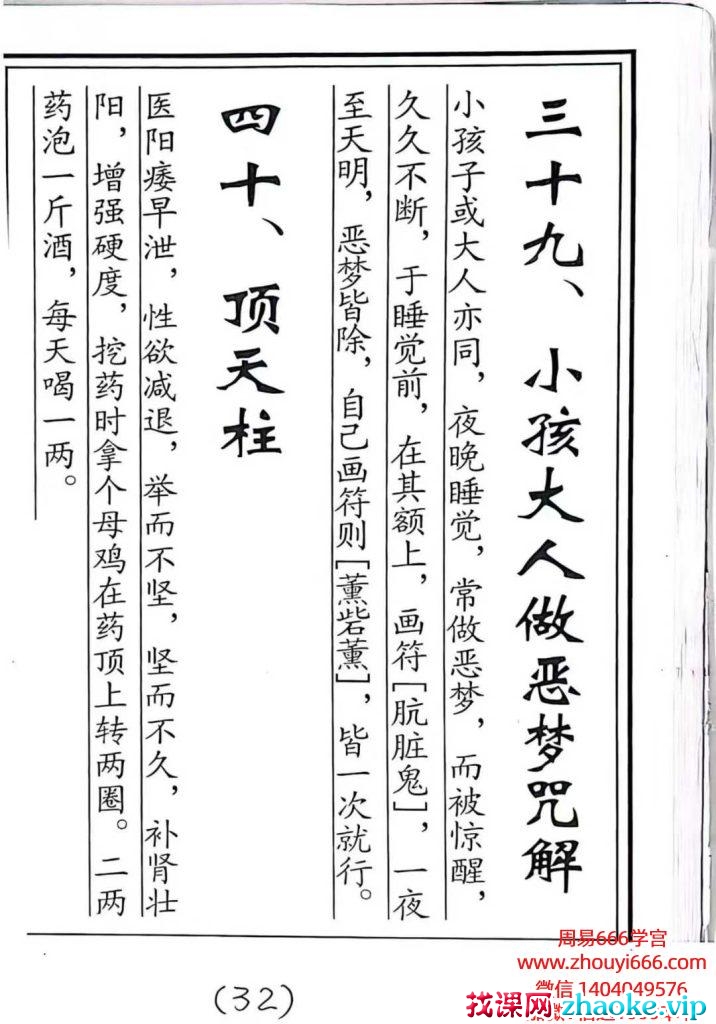 三十九、小孩大人做恶梦咒解
小孩子或大人亦同，夜晚睡觉，常做恶梦，而被惊醒，
久久不断，于睡觉前，在其额上，画符[肮脏鬼]，一夜
至天明，恶梦皆除，自己画符则[薰砦薰]，皆一次就行。
四十、顶天柱
医阳痿早泄，性欲减退，举而不坚，坚而不久，补肾壮
阳，增强硬度，挖药时拿个母鸡在药顶上转两圈。二两
药泡一斤酒，每天喝一两。
(32)
周易666学宫
www.zhouyi666.com
微信 1404049576
找课网zhaoke.vip